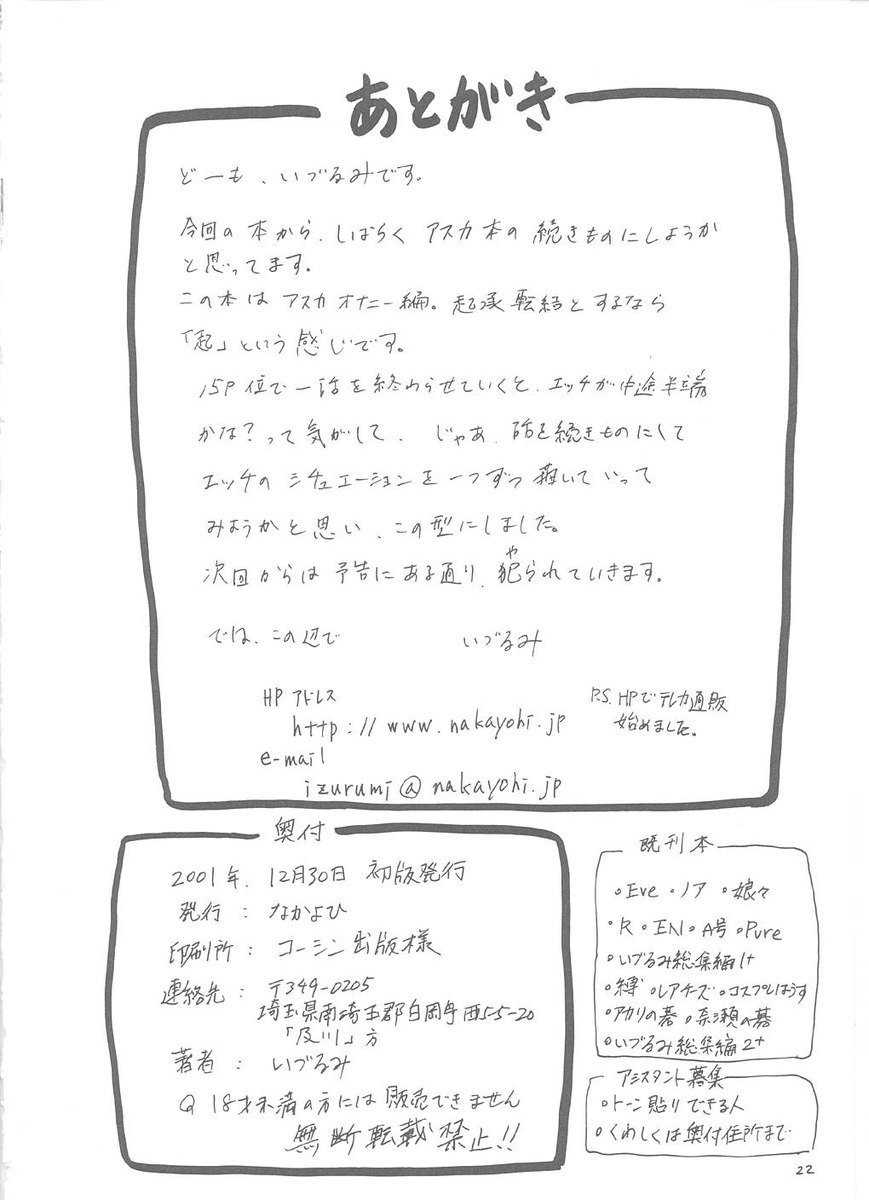 あとがき
どーも、いづるみです。
今回の本から、しばらくアスカ本の続きものにしようか
と思ってます。
この本はアスカオナニー編。起承転結とするなら
「起」という感じです。
15P位で一話を終わらせていくと、エッチが中途半端
かな?って気がして、じゃあ、話を続きものにして
エッチのシチュエーションを一つずつ描いていって
みようかと思い、この型にしました。
次回からは予告にある通り、犯られていきます。
や
では、この辺で いづるみ
HPアドレス
http://www.nakayohi.jp
e-mail
izurumi@nakayohi.jp
P.S. HPでテレカ通販
始めました。
奥付
2001年、12月30日 初版発行
発行 : なかよひ
印刷所 : コーシン出版様
連絡先 : 〒349-0205
埼玉県南埼玉郡白岡町西5-5-20
「及川」方
著者 : いづるみ
18才未満の方には販売できません
無断転載禁止!!
既刊本
・Eve ・ノア ・娘々
・R ・EN ・A号 ・Pure
・いづるみ総集編1+
・縛 ・レアチーズ ・コスプレはうす
・アカリの碁 ・奈瀬の碁
・いづるみ総集編2+
アシスタント募集
・トーン貼りできる人
・くわしくは奥付住所まで
22